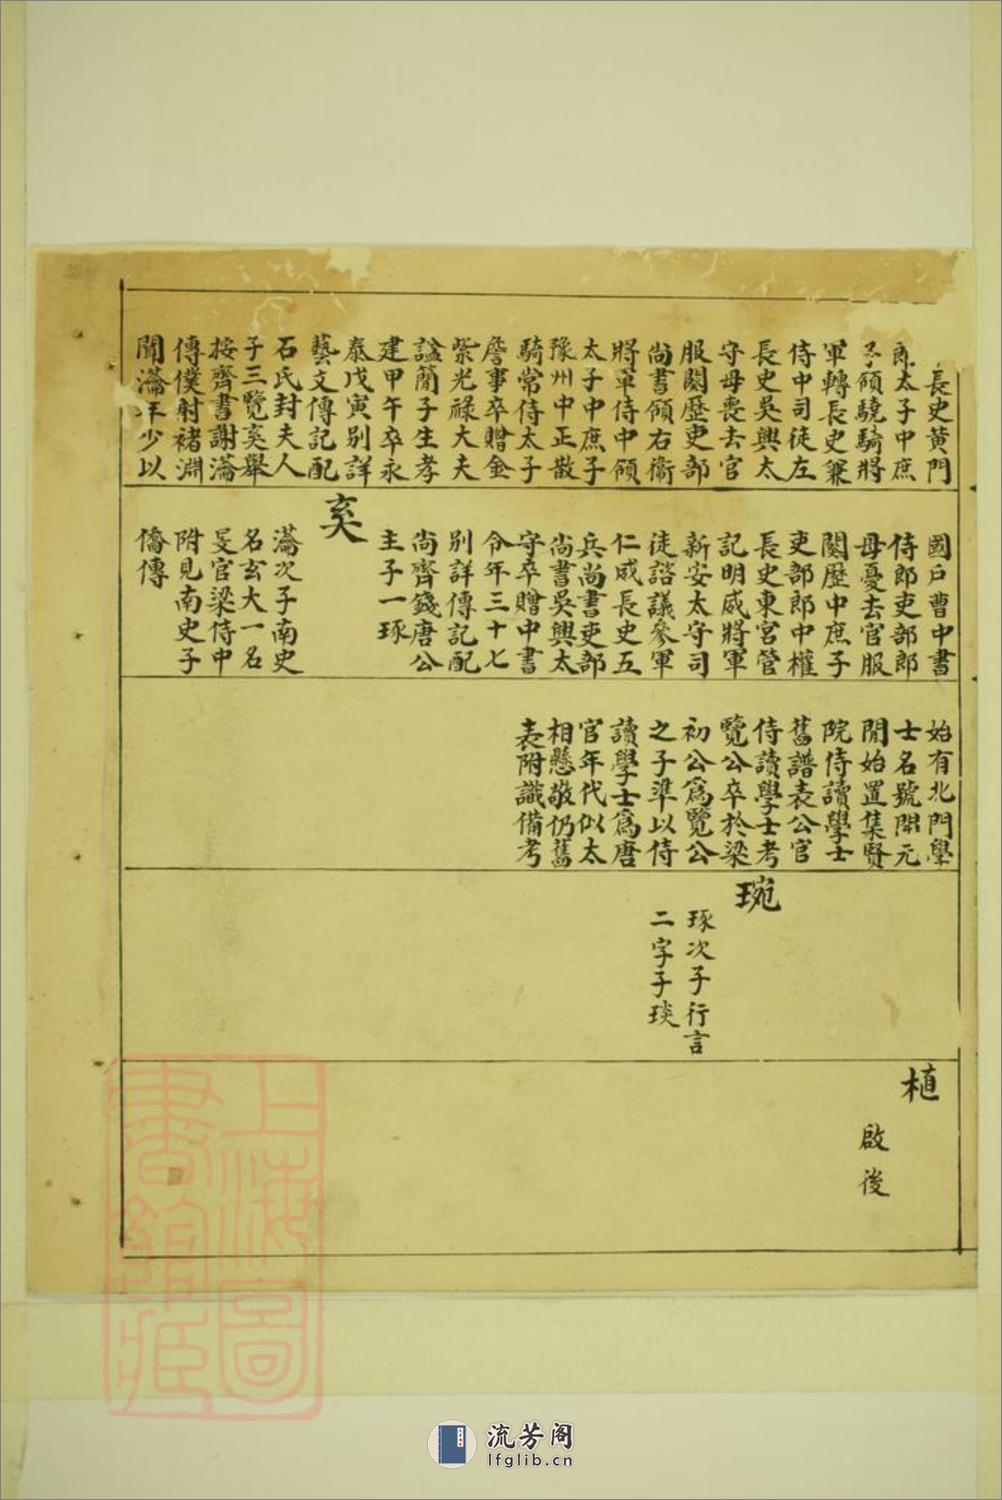 長史黄門
郎太子中庶
子領驍騎將
軍轉長史兼
侍中司徒左
長史吳興太
守母喪去官
服闋歷吏部
尚書領右衞
將軍侍中領
太子中庶子
豫州中正散
騎常侍太子
詹事卒贈金
紫光祿大夫
諡簡子生孝
建甲午卒永
泰戊寅别詳
藝文傳記配
石氏封夫人
子三覽㚖舉
按齊書謝瀹
傳僕射褚淵
聞瀹年少以
國戶曹中書
侍郎吏部郎
母憂去官服
闋歷中庶子
吏部郎中權
長史東宮管
記明威將軍
新安太守司
徒諮議參軍
仁威長史五
兵尚書吏部
尚書吳興太
守卒贈中書
令年三十七
别詳傳記配
尚齊錢唐公
主子一琢
㚖
瀹次子南史
名玄大一名
旻官梁侍中
附見南史子
僑傳
始有北門學
士名號開元
間始置集賢
院侍讀學士
舊譜表公官
侍讀學士考
覽公卒於梁
初公爲覽公
之子準以侍
讀學士爲唐
官年代似太
相懸敬仍舊
表附識備考
琬
琢次子行言
二字子琰
植
啟後
上海圖
書館藏
流芳阁
lfglib.cn